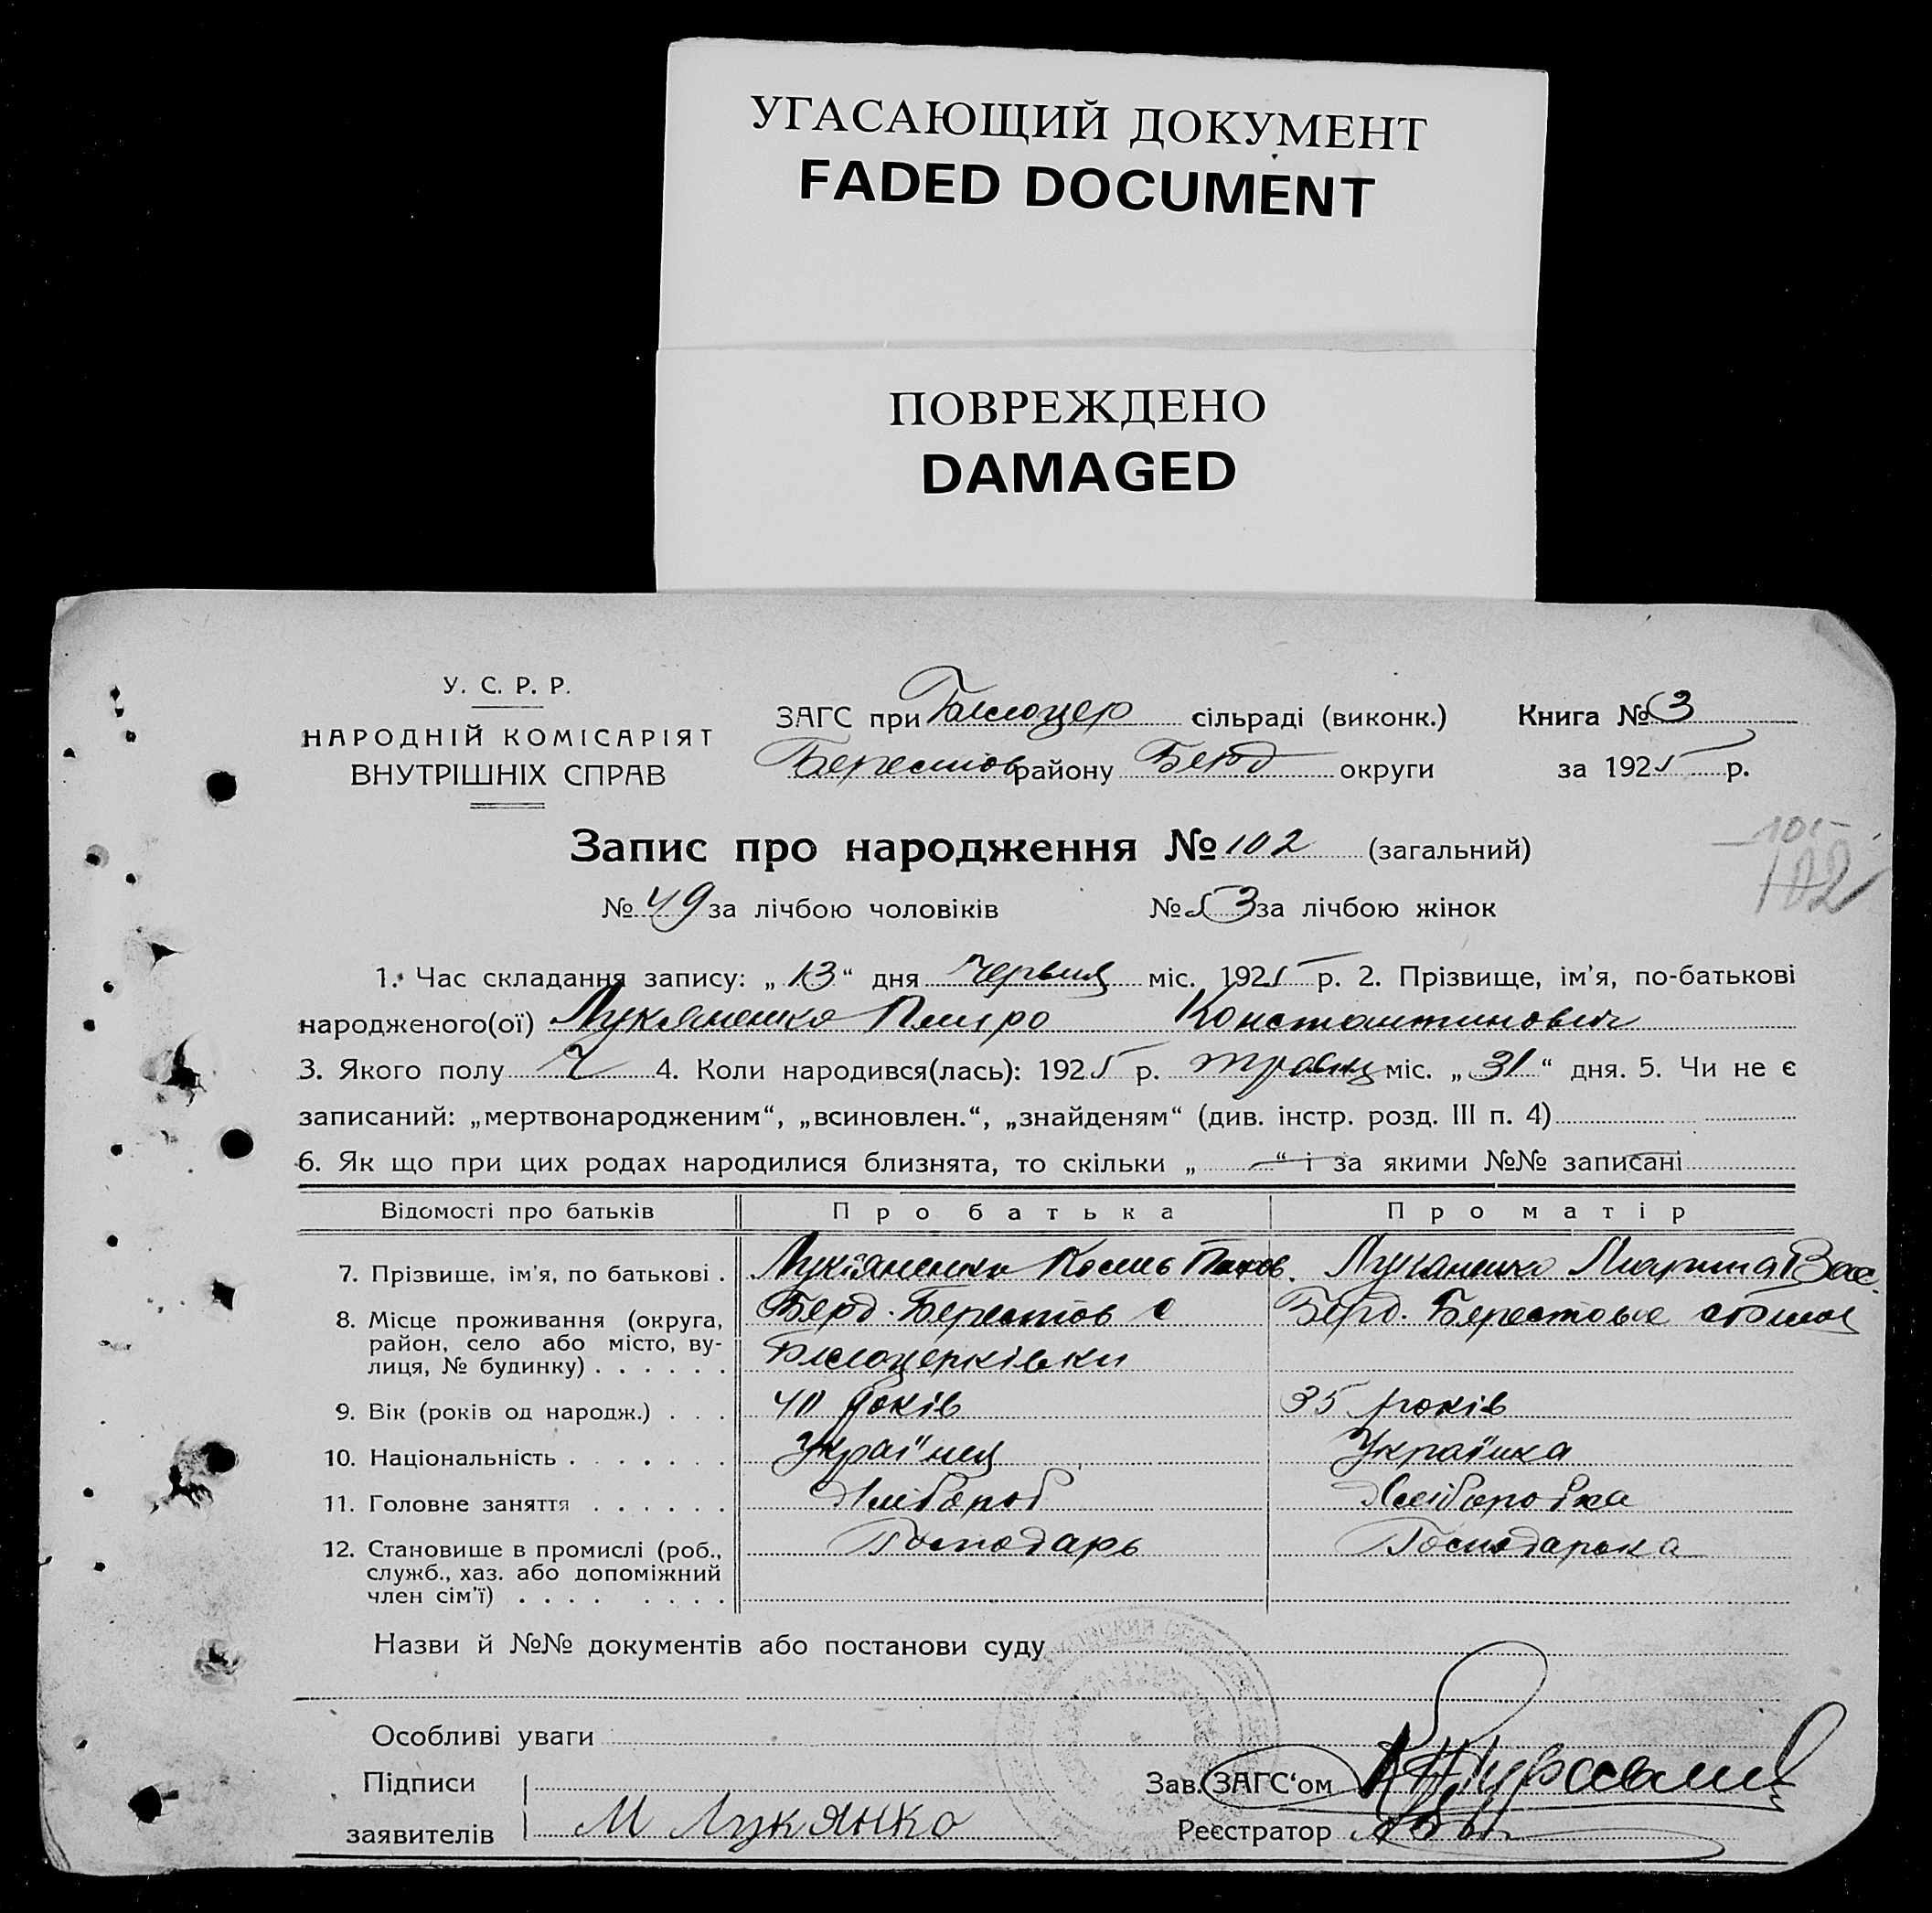 УГАСАЮЩИЙ ДОКУМЕНТ
FADED DOCUMENT
ПОВРЕЖДЕНО
DAMAGED
У. С. Р. Р.
НАРОДНІЙ КОМІСАРІЯТ
ВНУТРІШНІХ СПРАВ
ЗАГС при Білоцер сільраді (виконк.)
Берестов району Берд округи
Книга № 3
за 1925 р.
Запис про народження № 102 (загальний)
101
102
№ 49 за лічбою чоловіків № 53 за лічбою жінок
1. Час складання запису: „13“ дня Червня міс. 1925 р. 2. Прізвище, ім'я, по-батькові
народженого(ої) Лукяненко Петро Константинович
3. Якого полу Ч 4. Коли народився(лась): 1925 р. травня міс. „31“ дня. 5. Чи не є
записаний: „мертвонародженим“, „всиновлен.“, „знайденям“ (див. інстр. розд. III п. 4)
6. Як що при цих родах народилися близнята, то скільки „ — “ і за якими №№ записані
Відомості про батьків Про батька Про матір
7. Прізвище, ім'я, по батькові . Лукіяненко Кость Паков. Лукяненко Марина Вас.
8. Місце проживання (округа, Берд. Берестов с Берд. Берестовье
район, село або місто, ву-
лиця, № будинку) . . . . . . Білоцерківки
9. Вік (років од народж.) . . . 40 років 35 років
10. Національність . . . . . . . Українец Українка
11. Головне заняття . . . . . . Хлібороб Хліборобка
12. Становище в промислі (роб., Господарь Господарька
служб., хаз. або допоміжний
член сім'ї) . . . . . . . .
Назви й №№ документів або постанови суду
Особливі уваги
Підписи
заявителів М Лукянко
Зав. ЗАГС‘ом
Реєстратор